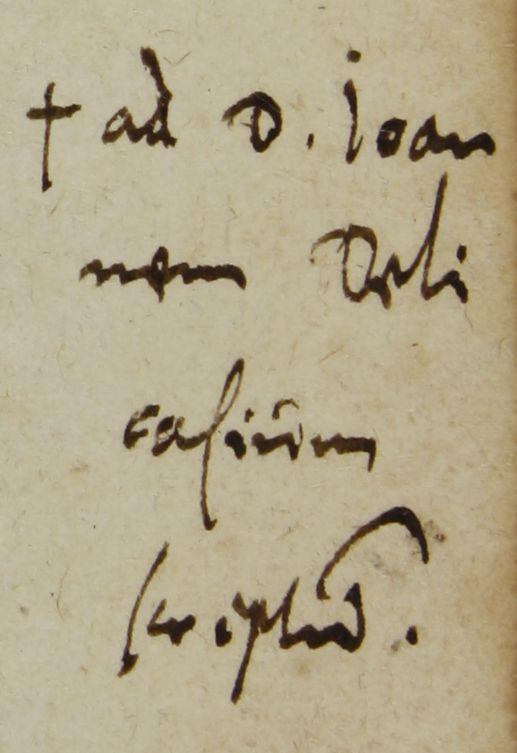 † ad D. Ioan
nem Deli
caſium
ſcriptū.